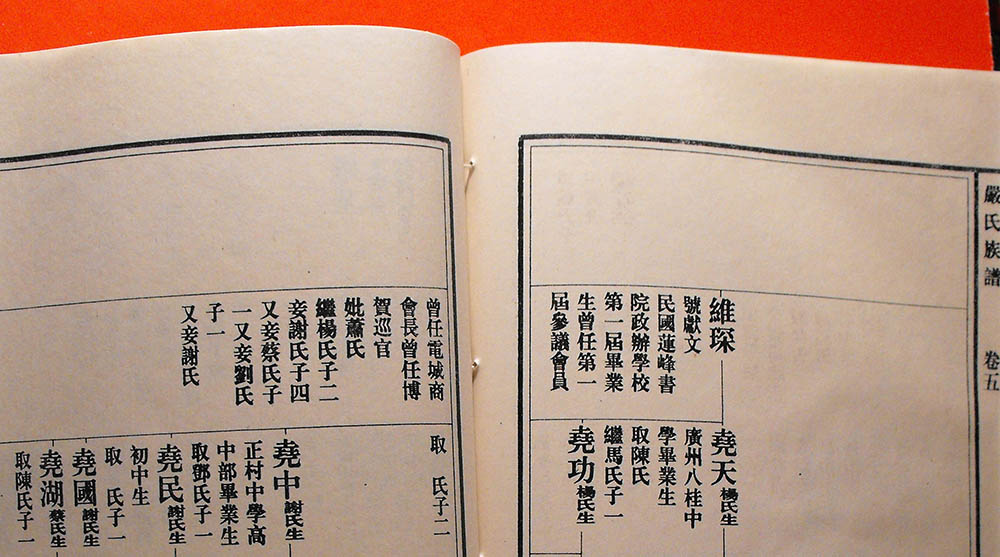 嚴氏族譜 卷五
維琛
號獻文
民國蓮峰書
院政辦學校
第一屆畢業
生曾任第一
屆參議會員
堯天 楊氏生
廣州八桂中
學畢業生
取陳氏
繼馬氏子一
堯功 楊氏生
曾任電城商
會長曾任博
賀巡官
妣蕭氏
繼楊氏子二
妾謝氏子四
又妾蔡氏子
一又妾劉氏
子一
又妾謝氏
取 氏子二
堯中 謝氏生
正村中學高
中部畢業生
取鄧氏子一
堯民 謝氏生
初中生
取 氏子一
堯國 謝氏生
堯湖 蔡氏生
取陳氏子一